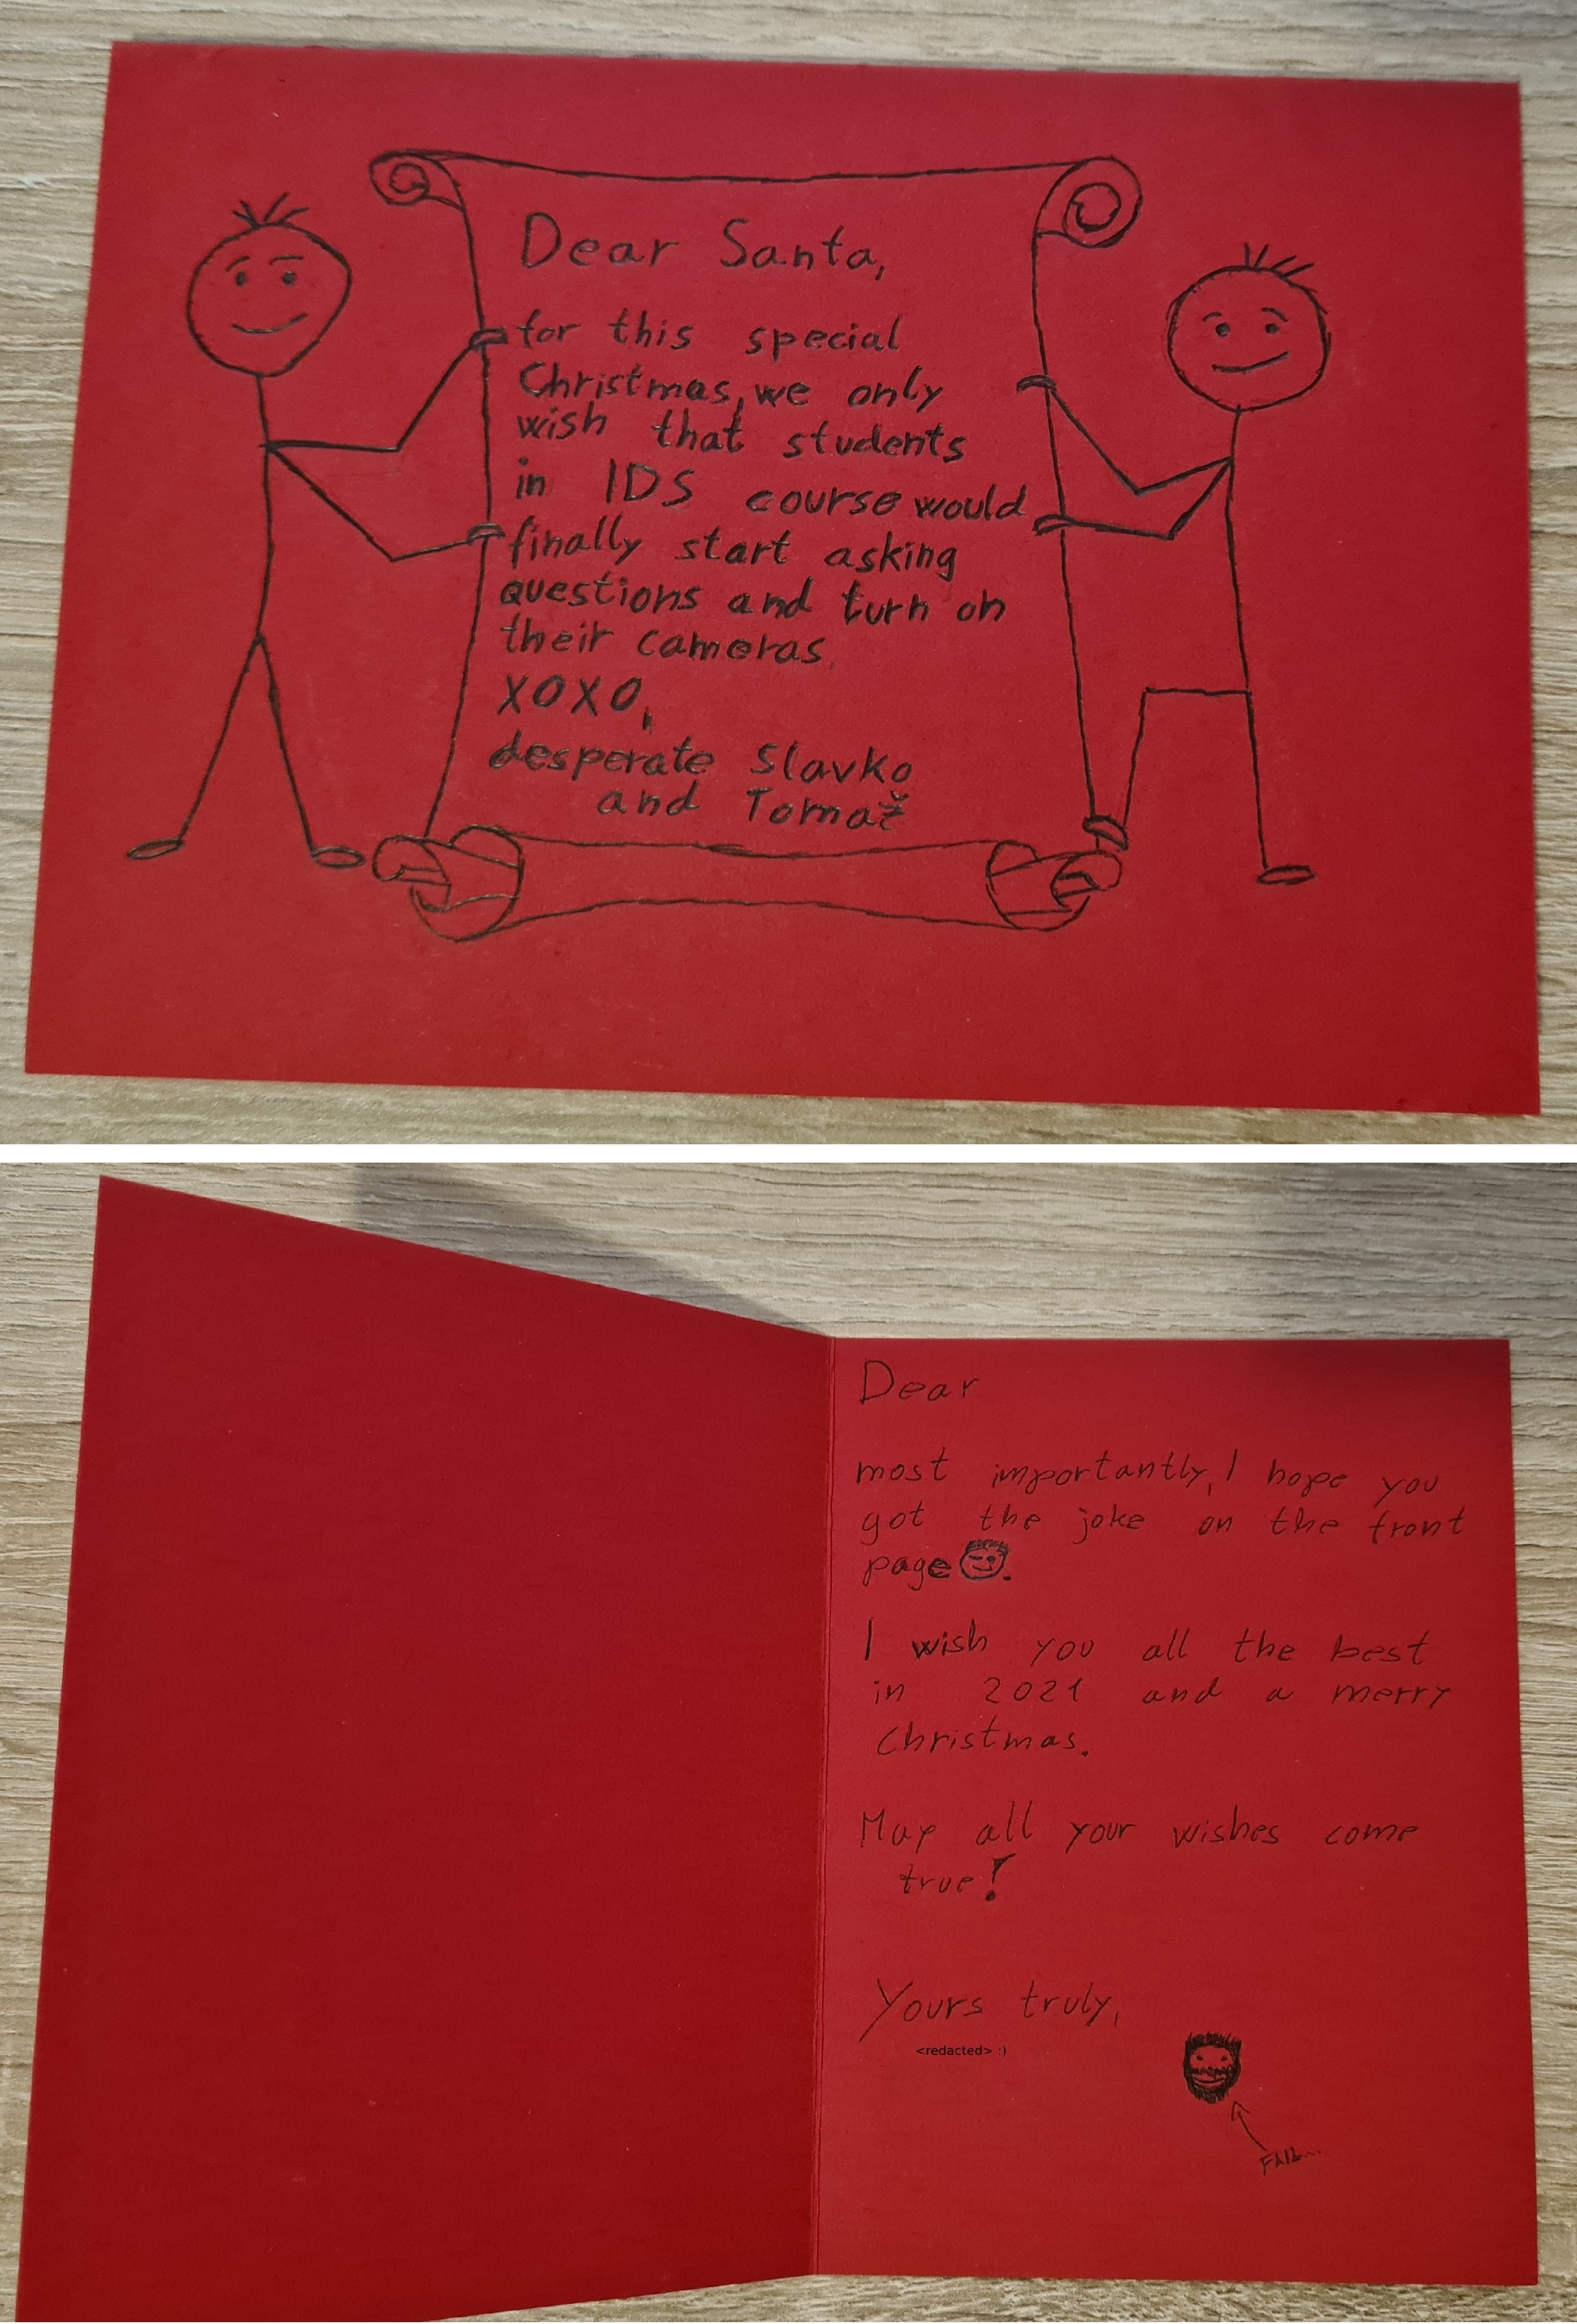 Dear Santa,
for this special
Christmas, we only
wish that students
in IDS course would
finally start asking
questions and turn on
their cameras.
XOXO,
desperate Slavko
and Tomaž
Dear
most importantly, I hope you
got the joke on the front
page .
I wish you all the best
in 2021 and a merry
Christmas.
May all your wishes come
true!
Yours truly,
<redacted> :)